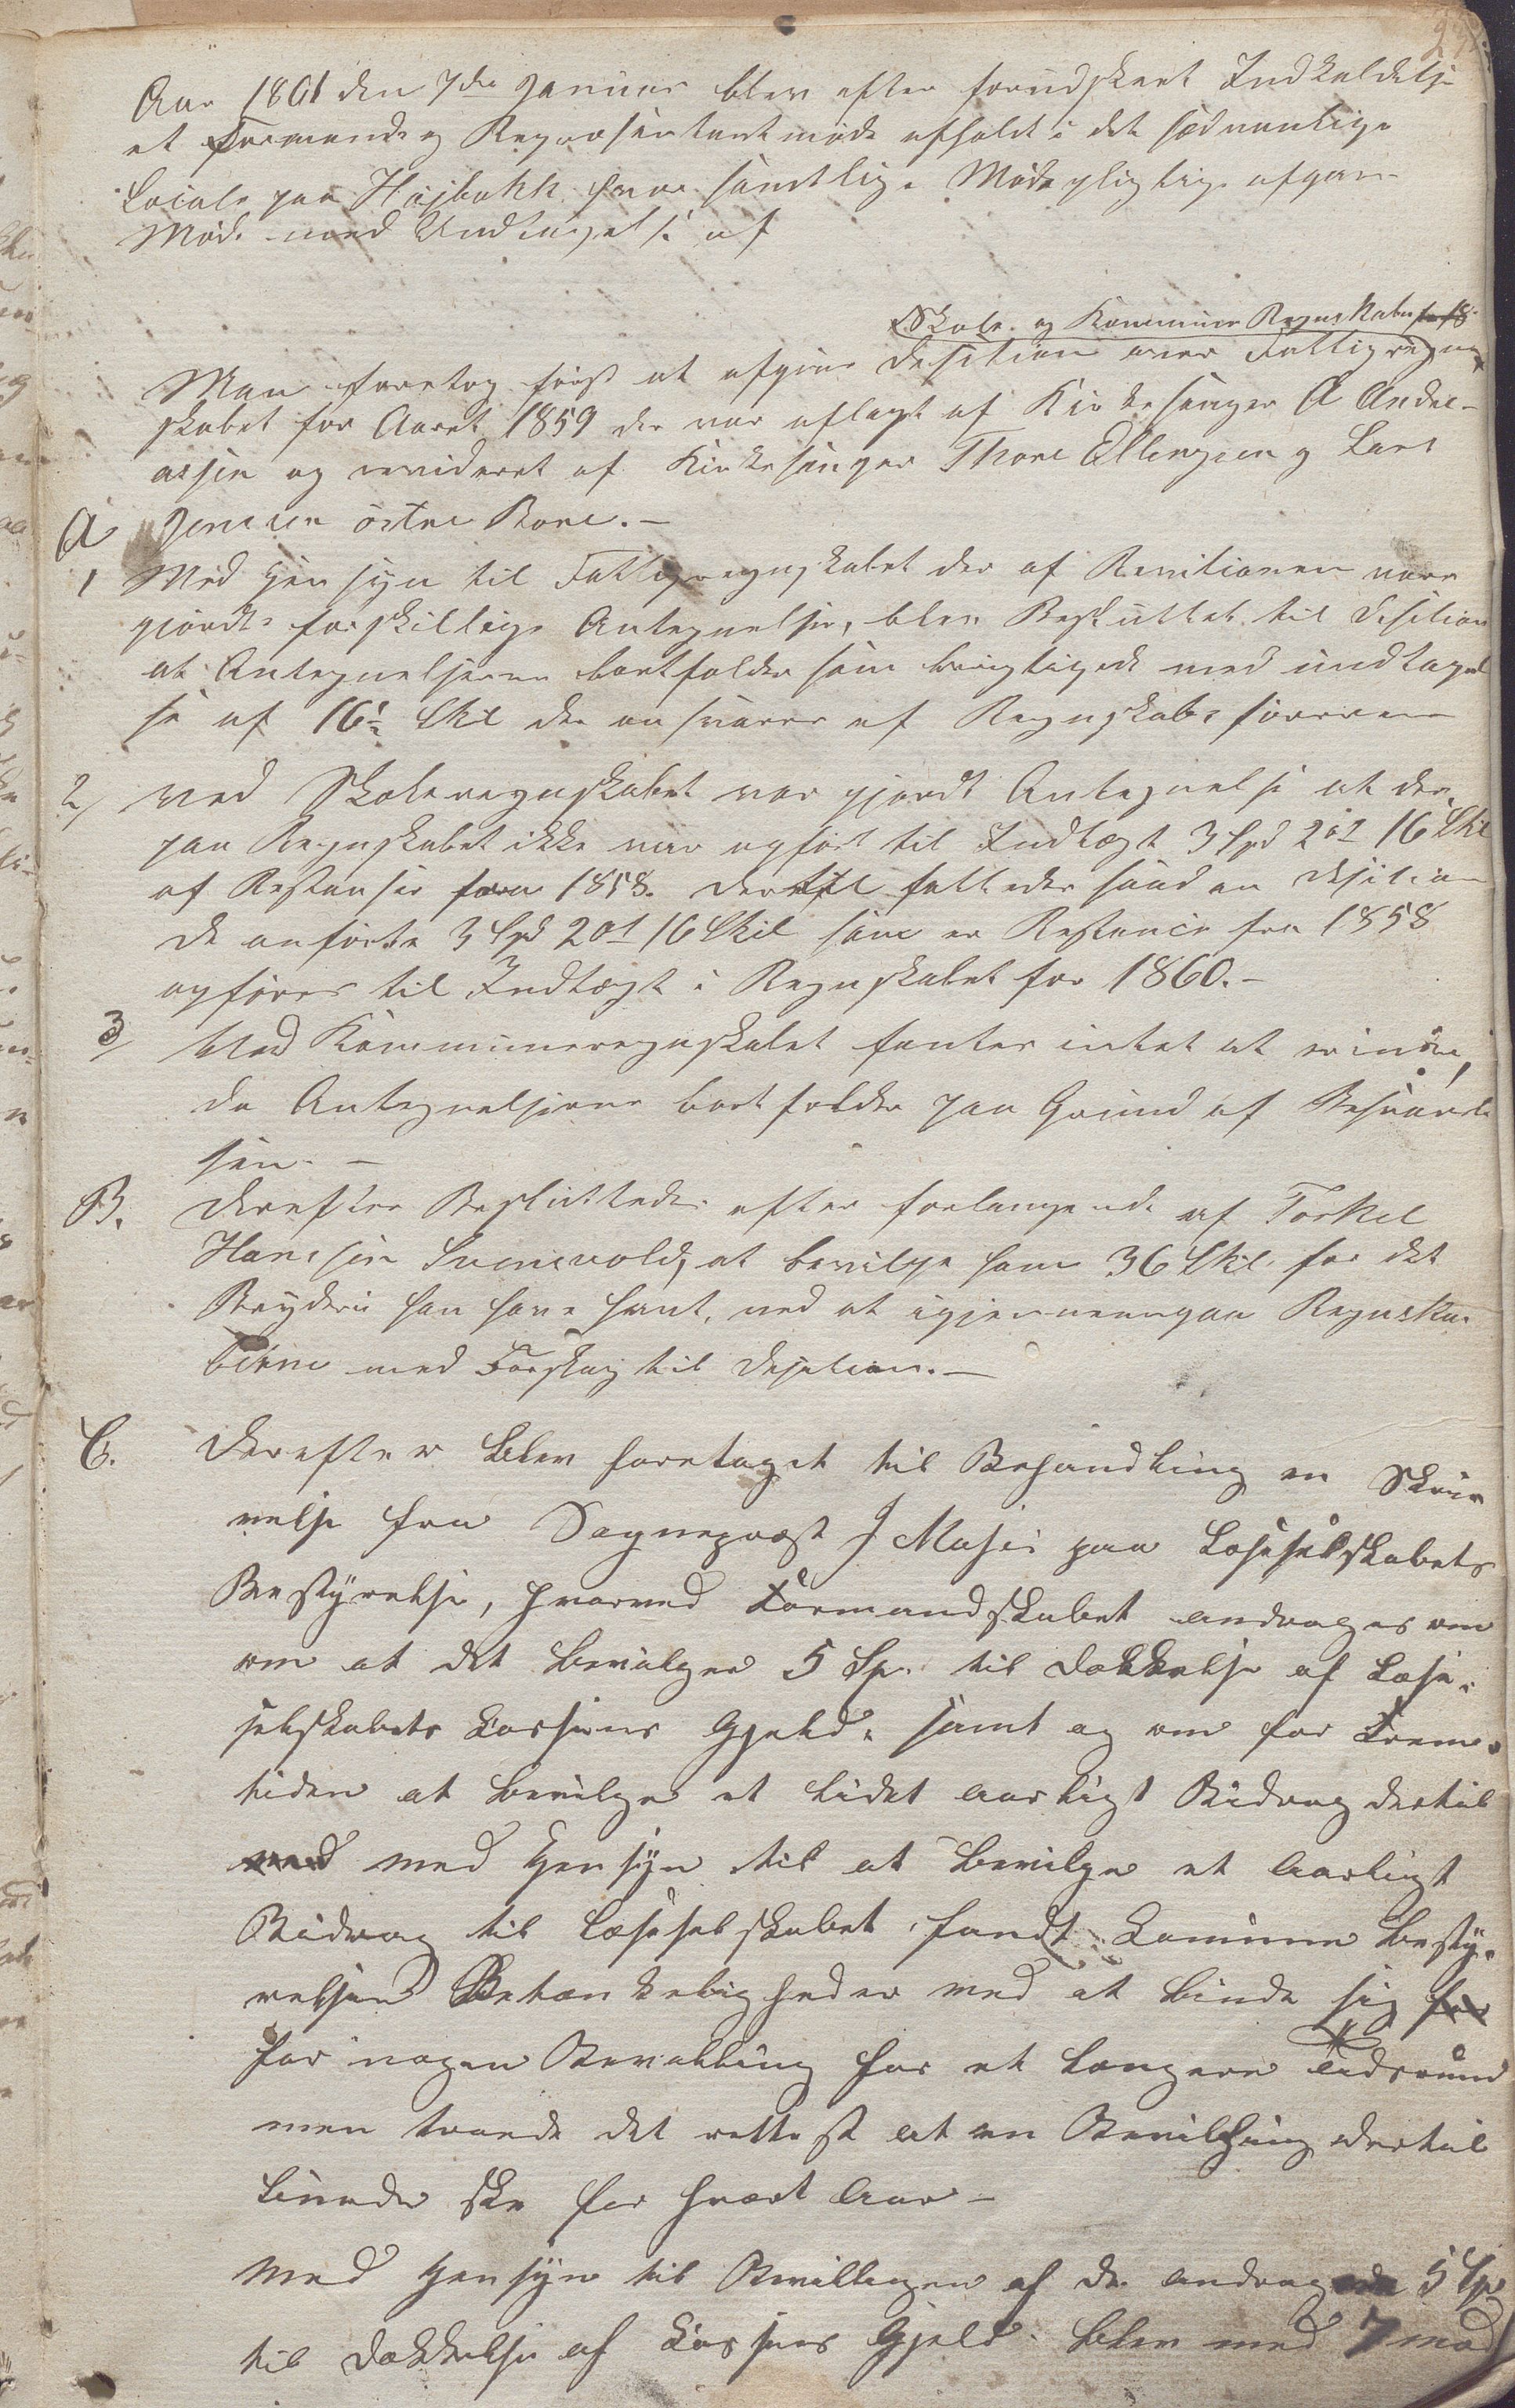 Aar 1861 den 7de Januar blev efter forudskeet Indkaldelse
et Formands og Repræsentantmøde afholdt i det sædvanlige
Locale paa Højbakk hvor samtlige Mødepligtige afgave
Møde med Undtagelse af
Skole og Kommune Regnskabet for 18
Man foretog først at afgive Desition over Fattigregn
skabet for Aaret 1859 der var aflagt af Kirkesanger A Andre-
assen og revideret af Kirkesanger Thore Ellingsen og Lars
A Jensen östre Bore.-
1 Med Hensyn til Fattigregnskabet der af Revitionen vare
gjordte forskjellige Antegnelser, blev Besluttet til Desition
at Antegnelserne bortfalder som berigtigede med undtagel
se af 16 Skil der ansvares af Regnskabsføreren
2/ Ved Skoleregnskabet var gjordt Antegnelse at der
paa Regnskabet ikke var opført til Indtægt 3 Spd 2 ort 16 Skil
af Restanser fra 1858. Dertil fattedes saadan Desition
de anførte 3 Spd 2 ort 16 Skil som er Restance fra 1858
opføres til Indtægt i Regnskabet for 1860.-
3/ Med Kommuneregnskabet fantes intet at erindre,
da Antegnelserne bortfalder paa Grund af Besvarel
sen. -
B. Derefter Besluttedes efter forlangende af Torkel
Hansen Svenevold, at bevilge ham 36 Skil for det
Bryderi han have havt, ved at igjennemgaa Regnska-
berne med Forslag til Desition.-
C. Derefter blev foretaget til Behandling en Skri
velse fra Sognepræst J Musus paa Læseselskabets
Bestyrelse, hvorved Formandskabet andrages om
om at det bevilger 5 Sp. til Dækkelse af Læse-
selskabets Casses Gjeld, samt og om for Frem-
tiden at bevilge et lidet aarligt Bidrag dertil
med med Hensyn til at bevilge et aarligt
Bidrag til Læseselskabet fandt Commune besty-
relsen Betænkeligheder ved at binde sig for
for nogen Bevilling for et længere Tidsrum
men troede det rettest at en Bevilgning dertil
burde ske for hvert Aar -
Med Hensyn til Bevillingen af de andragede 5 Sp
til Dækkelse af Cassens Gjeld blev med 7 mod